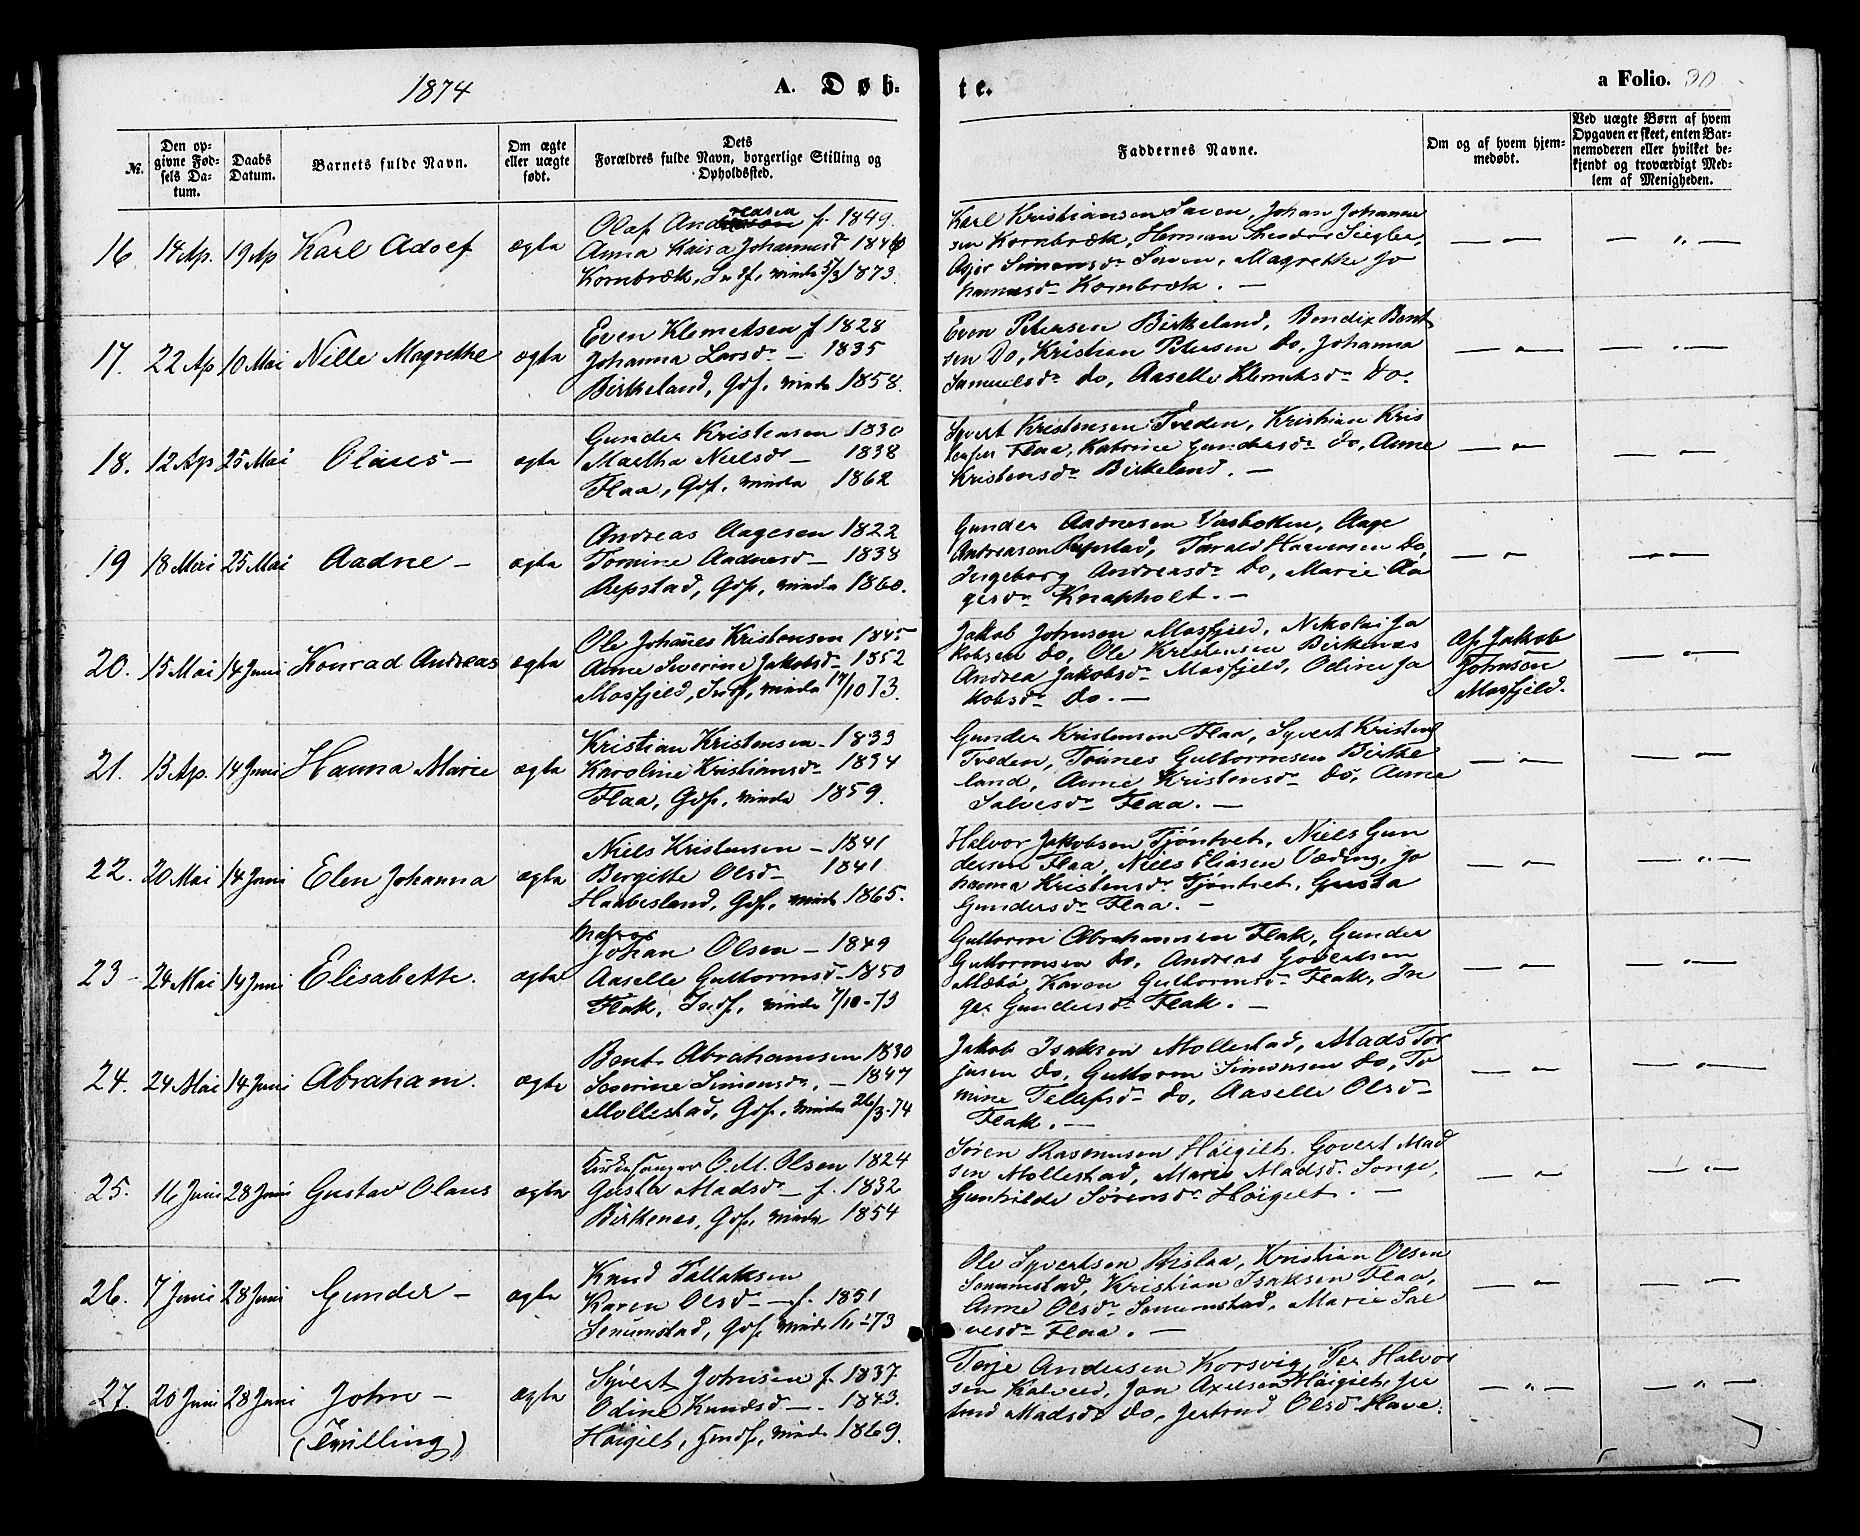 1874
A. Døb-
te.
a Folio. 30
№.
Den op-
givne Fød-
sels Da-
tum.
Daabs
Datum.
Barnets fulde Navn.
Om ægte
eller uægte
født.
Dets
Forældres fulde Navn, borgerlige Stilling og
Opholdssted.
Faddernes Navne.
Om og af hvem hjem-
medøbt.
Ved uægte Børn af hvem
Opgaven er skeet, enten Bar-
nemoderen eller hvilket be-
kjendt og troværdigt Med-
lem af Menigheden.
16. 14 Ap. 19 Ap Karl Adolf ægte
Olaf Andreasen f. 1849
Anna Kaisa Johannesd 1846
Kornbræk, In sf, viede 5/3 1873.
Karl Kristiansen Saven, Johan Johanne
sen Kornbræk, Herman Theodor Siegler,
Simonsd Saven, Magrethe Jo
hannesd Kornbræk. —
17. 22 Ap 10 Mai Nille Magrethe ægte
Even Klemetsen f 1828
Johanna Larsd — 1835
Birkeland, Gdf, viede 1858.
Even Petersen Birkeland, Bendix Bent
sen do, Kristian Petersen do, Johanna
Samuelsd do, Aaselle Klemetsd do.
18. 12 Ap 25 Mai Olaus — ægte
Gunder Kristensen 1830
Martha Nielsd — 1838
Flaa, Gdf, viede 1862
Syvert Kristensen Tveden, Kristian Kris
tensen Flaa, Katrine Gundersd do, Anne
Kristensd Birkeland. —
19 18 Mai 25 Mai Aadne — ægte
Andreas Aagesen 1822
Tomine Aadnesd — 1838
Repstad, Gdf, viede 1860.
Gunder Aadnesen Væsbotten, Aage
Andreasen Repstad, Tarald Haavorsen do,
Ingeborg Andreasd do, Marie Aa
gesd Knapholt. —
20. 15 Mai 14 Juni Konrad Andreas ægte
Ole Johannes Kristensen 1845
Anne Severine Jakobsd — 1852
Mosfjeld, Indf, viede 17/10 73.
Jakob Johnsen Mosfjeld, Nikolai Ja
kobsen do, Ole Kristensen Birkenes
Andrea Jakobsd Mosfjeld, Odine Ja
kobsd do. —
Af Jakob
Johnsen
Mosfjeld.
21. 13 Ap. 14 Juni Hanna Marie ægte
Kristian Kristensen — 1833
Karoline Kristiansd 1834
Flaa, Gdf, viede 1859.
Gunder Kristensen Flaa, Syvert Kristens
Tveden, Tønnes Guttormsen Birke
land, Anne Kristensd do, Anne
Salvesd Flaa. —
22. 20 Mai 14 Juni Elen Johanna ægte
Niels Kristensen — 1841
Bergitte Olsd — 1841
Haabesland, Gdf, viede 1865.
Halvor Jakobsen Tjøntvet, Niels Gun
dersen Flaa, Niels Eliasen Væding, Jo
hanna Kristensd Tjøntvet, Gusta
Gundersd Flaa. —
23 — 24 Mai 14 Juni Elisabeth. ægte
Johan Olsen — 1849
Aaselle Guttormsd 1850
Flak, Indf, viede 7/10-73
Guttorm Abrahamsen Flak, Gunder
Guttormsen do, Andreas Govertsen
Mæbø, Karen Guttormsd Flak, In
ger Gundersd Flak. —
24. 24 Mai 14 Juni Abraham. ægte
Bent Abrahamsen 1830
Severine Simonsd. — 1847
Mollestad, Gdf, viede 26/3-74
Jakob Isaksen Mollestad, Mads Tor
jusen do, Guttorm Simonsen do, To
mine Tellefsd do, Aaselle Olsd
Flak. —
25. 16 Juni 28 Juni Gustav Olaus ægte
Kirkesanger O. M. Olsen 1824
Gusta Madsd — f. 1832
Birkenes, Gdf, viede 1854
Søren Rasmussen Høigilt, Govert Mad
sen Mollestad, Marie Madsd. Songe,
Gunhilde Sørensd Høigilt. —
26. 7 Juni 28 Juni Gunder — ægte
Knud Tallaksen
Karen Olsd — f. 1851
Senumstad, Gdf viede 1/11-73
Ole Syvertsen Rislaa, Kristian Olsen
Senumstad, Kristian Isaksen Flaa,
Anne Olsd Senumstad, Marie Sal
vesd Flaa. —
27. 20 Juni 28 Juni John —
(Tvilling) ægte
Syvert Johnsen f. 1837
Odine Knudsd —. 1843.
Høigilt, Gmdf, viede 1869.
Terje Andersen Korsvig, Per Halvor
sen Kalveld, Jon Axelsen Høigilt, Jer
trud Madsd do, Jertrud Olsd Have.